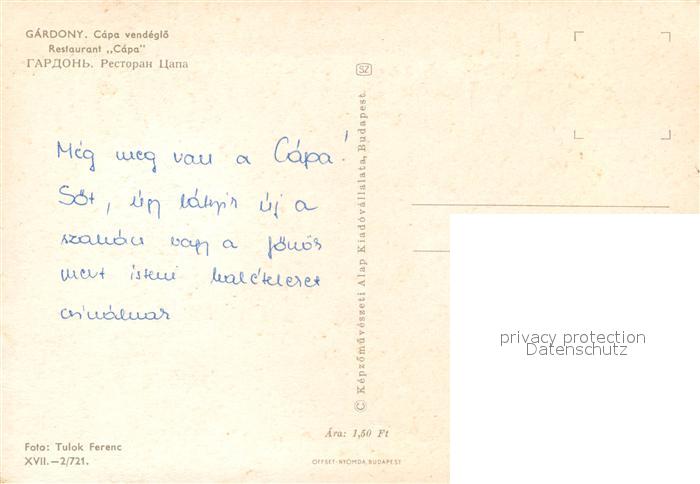 GÁRDONY. Cápa vendéglő
Restaurant „Cápa"
ГАРДОНЬ. Ресторан Цапа
Még meg van a Cápa!
Sőt, úgy látszik új a
szakács vagy a főnök
mert isteni halételeket
csinálnak
SZ
© Képzőművészeti Alap Kiadóvállalata, Budapest
privacy protection
Datenschutz
Foto: Tulok Ferenc
XVII.—2/721.
Ára: 1,50 Ft
OFFSET-NYOMDA, BUDAPEST